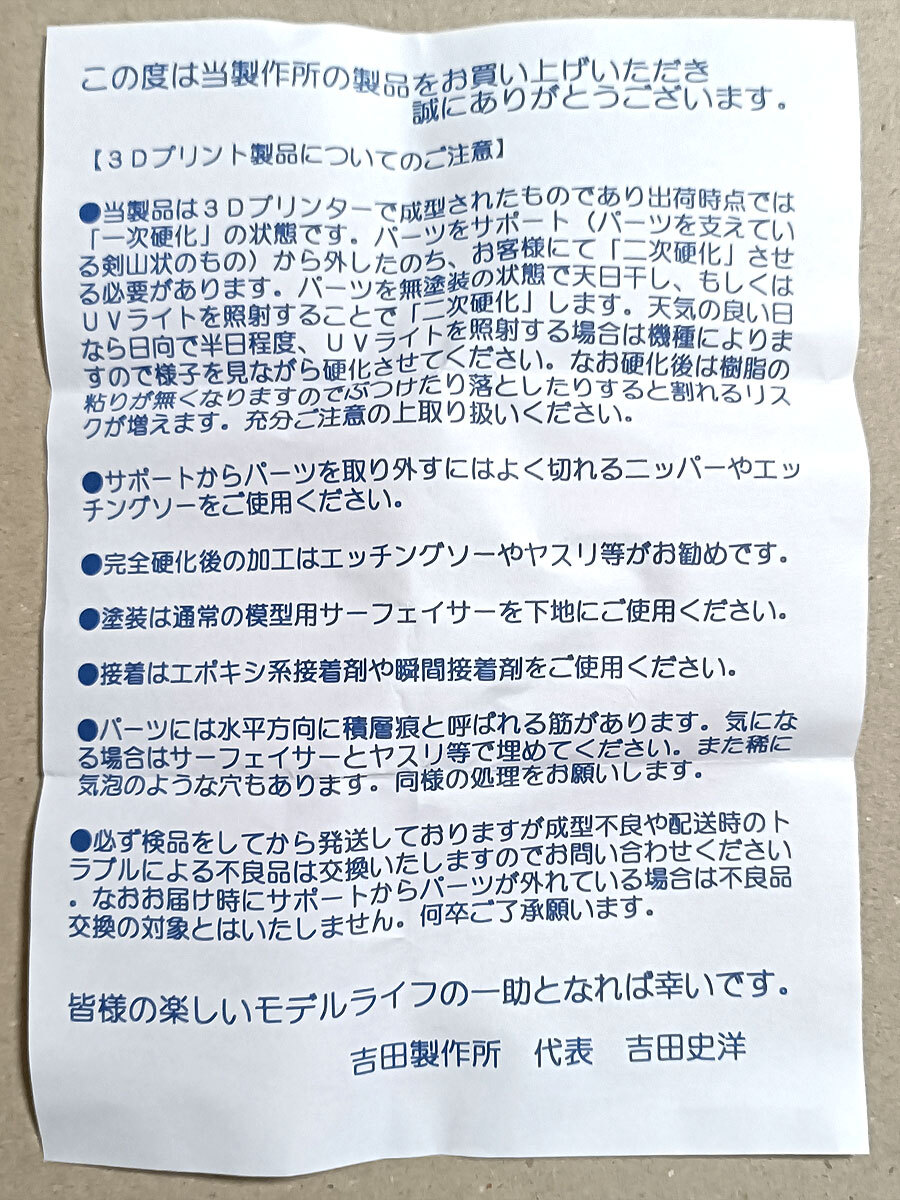 この度は当製作所の製品をお買い上げいただき
誠にありがとうございます。
【３Dプリント製品についてのご注意】
●当製品は３Dプリンターで成型されたものであり出荷時点では
「一次硬化」の状態です。パーツをサポート（パーツを支えてい
る剣山状のもの）から外したのち、お客様にて「二次硬化」させ
る必要があります。パーツを無塗装の状態で天日干し、もしくは
UVライトを照射することで「二次硬化」します。天気の良い日
なら日向で半日程度、UVライトを照射する場合は機種によりま
すので様子を見ながら硬化させてください。なお硬化後は樹脂の
粘りが無くなりますのでぶつけたり落としたりすると割れるリス
クが増えます。充分ご注意の上取り扱いください。
●サポートからパーツを取り外すにはよく切れるニッパーやエッ
チングソーをご使用ください。
●完全硬化後の加工はエッチングソーやヤスリ等がお勧めです。
●塗装は通常の模型用サーフェイサーを下地にご使用ください。
●接着はエポキシ系接着剤や瞬間接着剤をご使用ください。
●パーツには水平方向に積層痕と呼ばれる筋があります。気にな
る場合はサーフェイサーとヤスリ等で埋めてください。また稀に
気泡のような穴もあります。同様の処理をお願いします。
●必ず検品をしてから発送しておりますが成型不良や配送時のト
ラブルによる不良品は交換いたしますのでお問い合わせください
。なおお届け時にサポートからパーツが外れている場合は不良品
交換の対象とはいたしません。何卒ご了承願います。
皆様の楽しいモデルライフの一助となれば幸いです。
吉田製作所　代表　吉田史洋